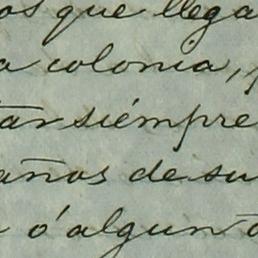 os que llega
a colonia,
tar siémpre
años de su
ó algun